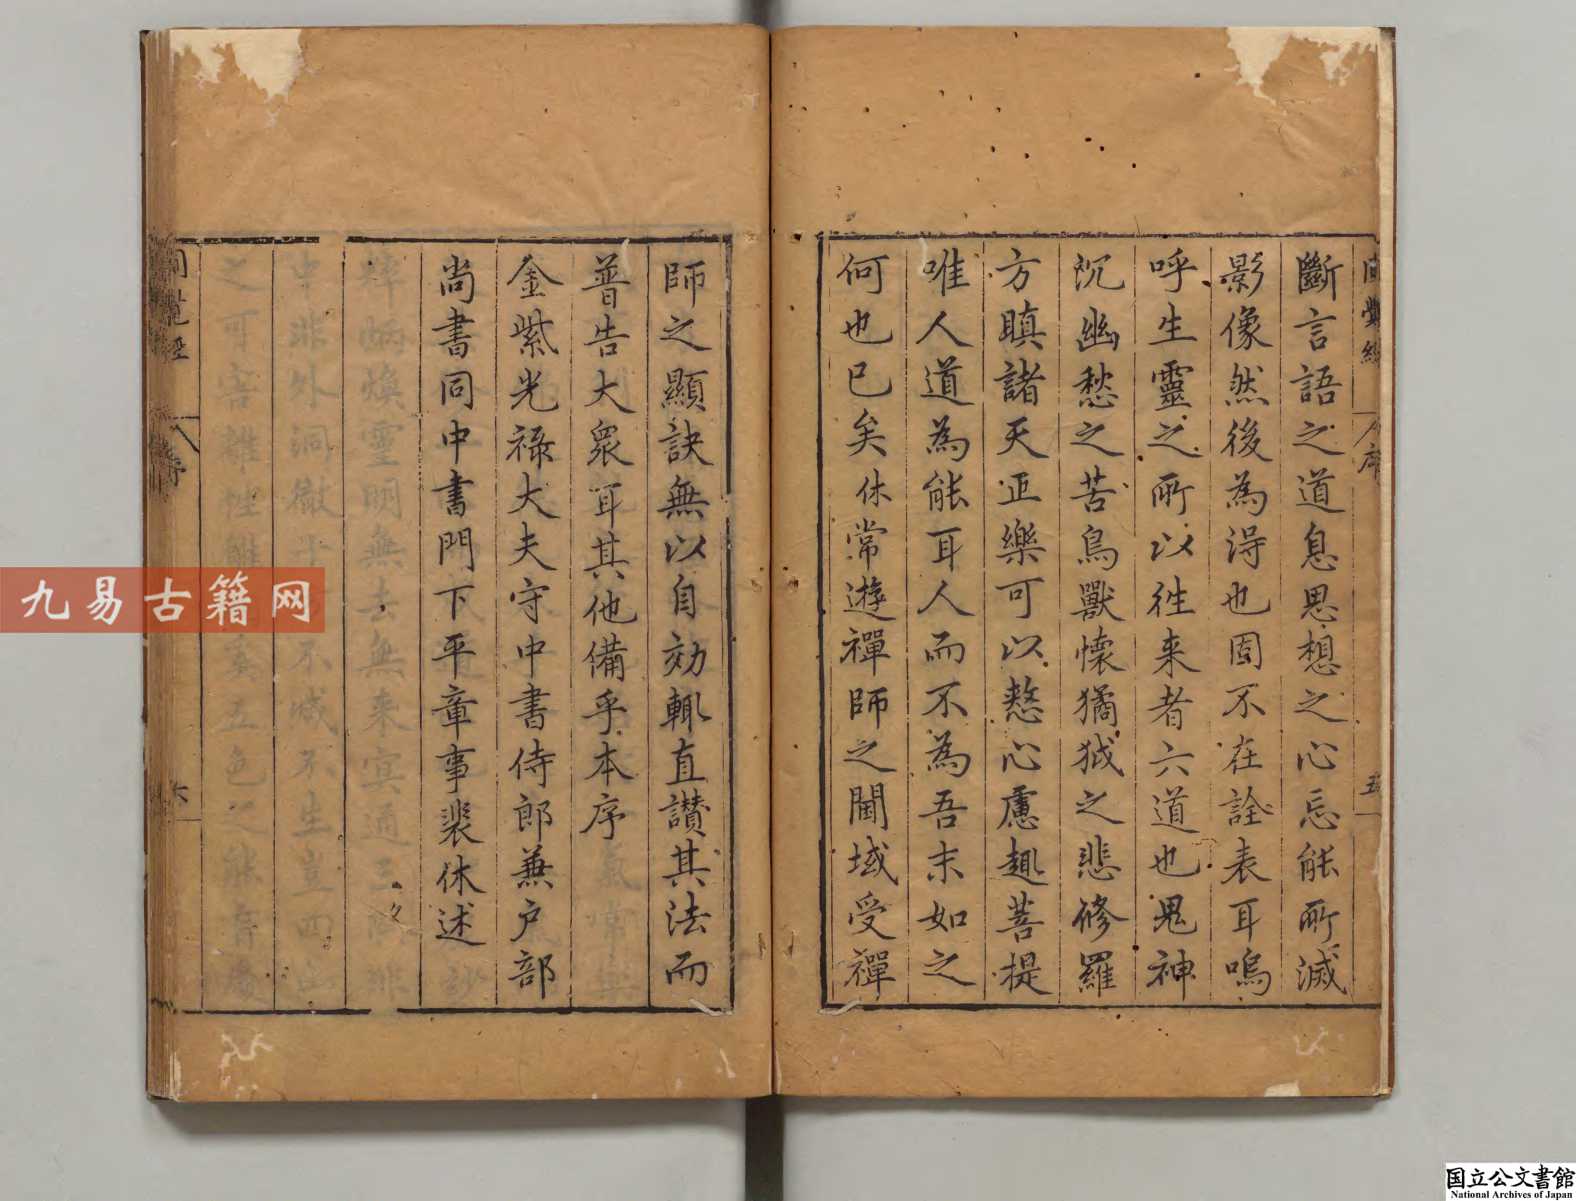 斷言語之道息思想之心忘能所滅
影像然後為得也固不在詮表耳嗚
呼生靈之所以徃来者六道也鬼神
沉幽愁之苦鳥獸懷獝狘之悲修羅
方瞋諸天正樂可以整心慮趣菩提
唯人道為能耳人而不為吾末如之
何也已矣休常遊禪師之閫域受禪
師之顯訣無以自効輙直讃其法而
普告大衆耳其他備乎本序
金紫光祿大夫守中書侍郎兼户部
尚書同中書門下平章事裴休述
序
五
六
九易古籍网
国立公文書館
National Archives of Japan